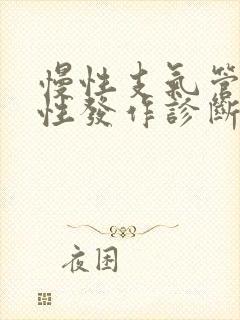 慢性支氣管
性發作診斷
夜困